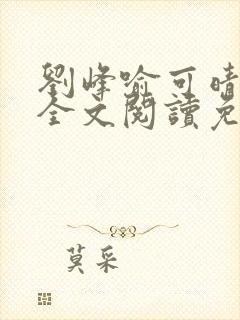 劉峰喻可晴
全文閱讀免
莫采